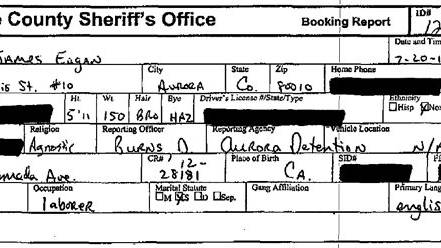 e County Sheriff's Office Booking Report ID#
12
Date and Tim
James Eagan 7-20-1
City State Zip Home Phone
is St. #10 Aurora Co. 80010
Ht. Wt Hair Eye Driver's License #/State/Type Ethnicity
5'11 150 Bro Haz Hisp Non
Religion Reporting Officer Reporting Agency Vehicle Location
Agnostic Burns D Aurora Detention N/A
CR# Place of Birth SID#
12-
mada Ave. 28181 CA.
Occupation Marital Statute Gang Affiliation Primary Lang
laborer M S D Sep. english